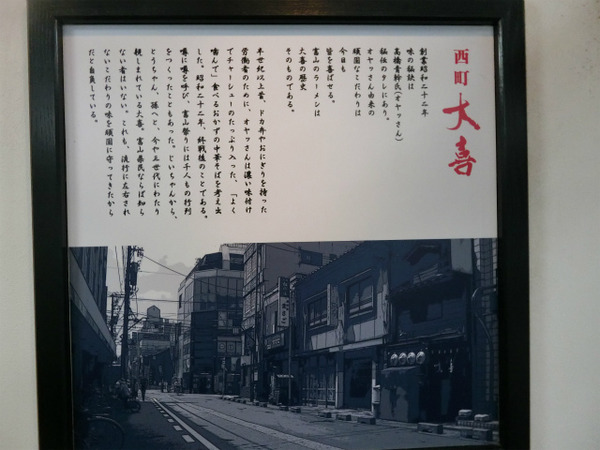 西町大喜
創業昭和二十二年
味の秘訣は
高橋青幹氏(オヤッさん)
秘伝のタレにあり。
オヤッさん由来の
頑固なこだわりは
今日も
皆を喜ばせる。
富山のラーメンは
大喜の歴史
そのものである。
半世紀以上昔、ドカ弁やおにぎりを持った
労働者のために、オヤッさんは濃い味付け
でチャーシューのたっぷり入った、「よく
噛んで」食べるおかずの中華そばを考え出
した。昭和二十二年、終戦後のことである。
噂に噂を呼び、富山祭りには千人もの行列
をつくったこともあった。じいちゃんから、
とうちゃん、孫へと、今や三世代にわたり
親しまれている大喜。富山県民ならば知ら
ない者はいない。これも、流行に左右され
ないこだわりの味を頑固に守ってきたから
だと自負している。